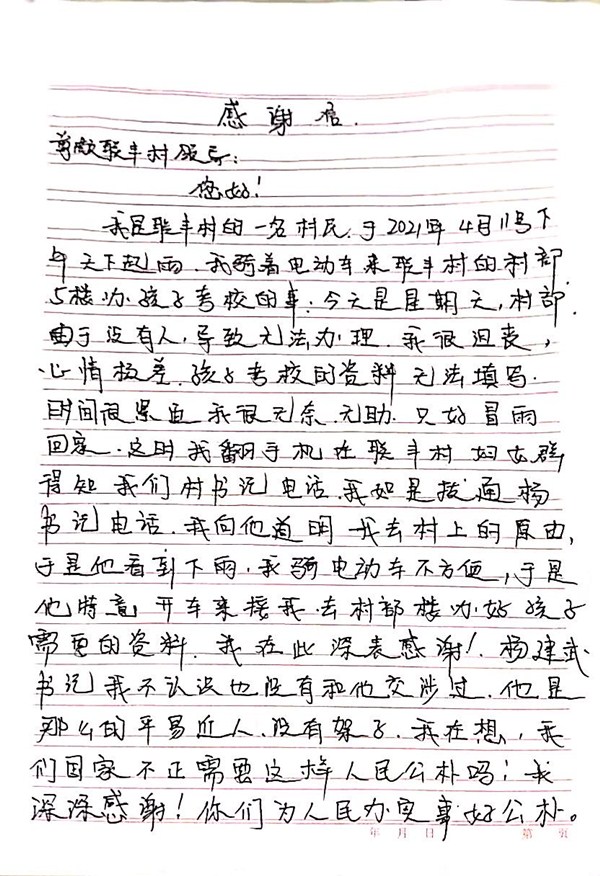 感谢信.
尊敬联丰村领导:
您好!
我是联丰村的一名村民.于2021年4月11号下
午天下起雨.我骑着电动车来联丰村的村部
5楼办孩子考校的事.今天是星期天,村部
由于没有人,导致无法办理.我很沮丧,
心情极差.孩子考校的资料无法填写.
时间很紧且我很无奈.无助.只好冒雨
回家.这时我翻手机在联丰村妇女群
得知我们村书记电话.我如是拔通杨
书记电话.我向他道明我去村上的原由,
于是他看到下雨.我骑电动车不方便,于是
他特意开车来接我.去村部楼办好孩子
需要的资料.我在此深表感谢!杨建武
书记我不认识也没有和他交涉过.他是
那么的平易近人.没有架子.我在想,我
们国家不正需要这样人民公朴吗!我
深深感谢!你们为人民办实事好公朴。
年月日 第 张